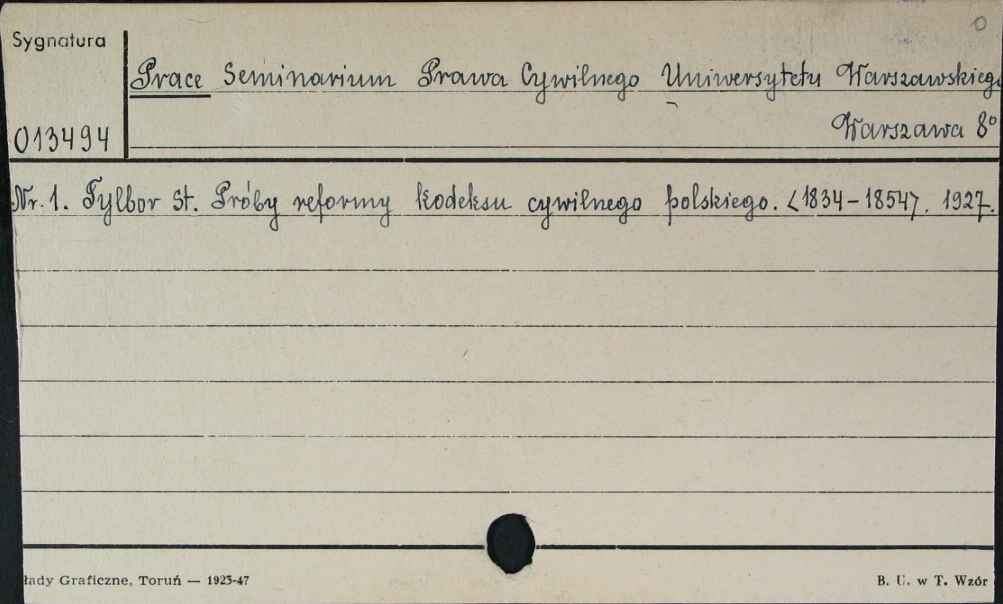 0
Sygnatura
Prace Seminarium Prawa Cywilnego Uniwersytetu Warszawskieg
013494 Warszawa 8°
Nr. 1. Tylbor St. Próby reformy kodeksu cywilnego polskiego. <1834-1854>. 1927.
łady Graficzne, Toruń — 1923-47 B. U. w T. Wzór